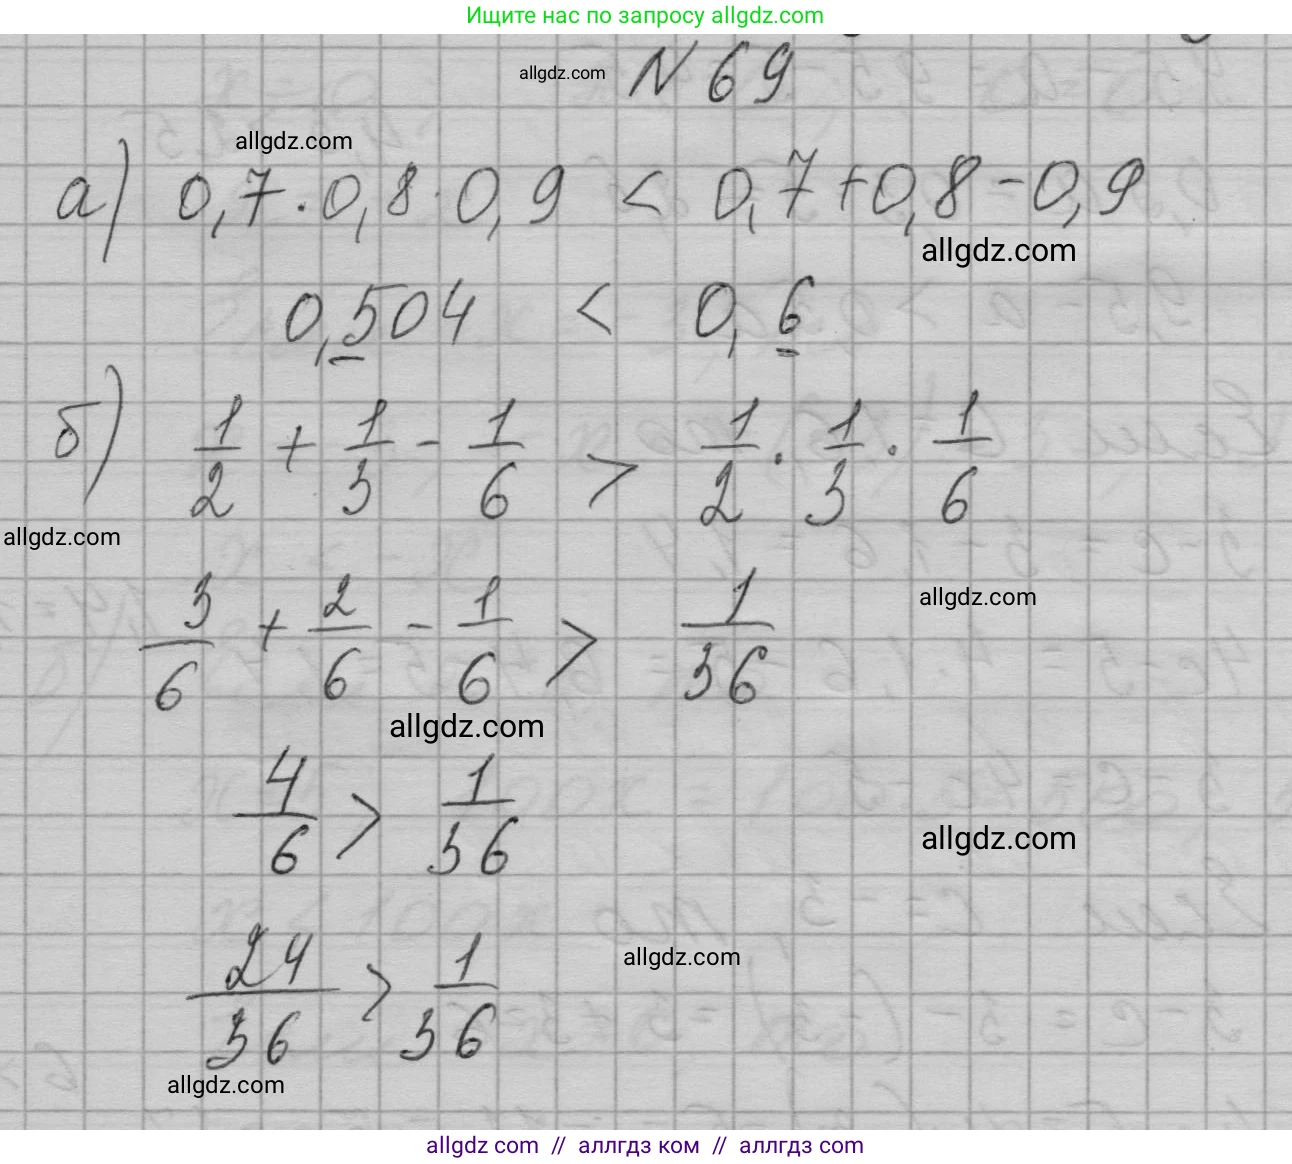 Ищите нас по запросу allgdz.com
allgdz.com N 69
allgdz.com
а) 0,7 · 0,8 · 0,9 < 0,7 + 0,8 - 0,9
allgdz.com
0,504 < 0,6
б) 1/2 + 1/3 - 1/6 > 1/2 · 1/3 · 1/6
allgdz.com
3/6 + 2/6 - 1/6 > 1/36
allgdz.com
allgdz.com
4/6 > 1/36
allgdz.com
24/36 > 1/36
allgdz.com
allgdz.com
allgdz com // аллгдз ком // аллгдз com